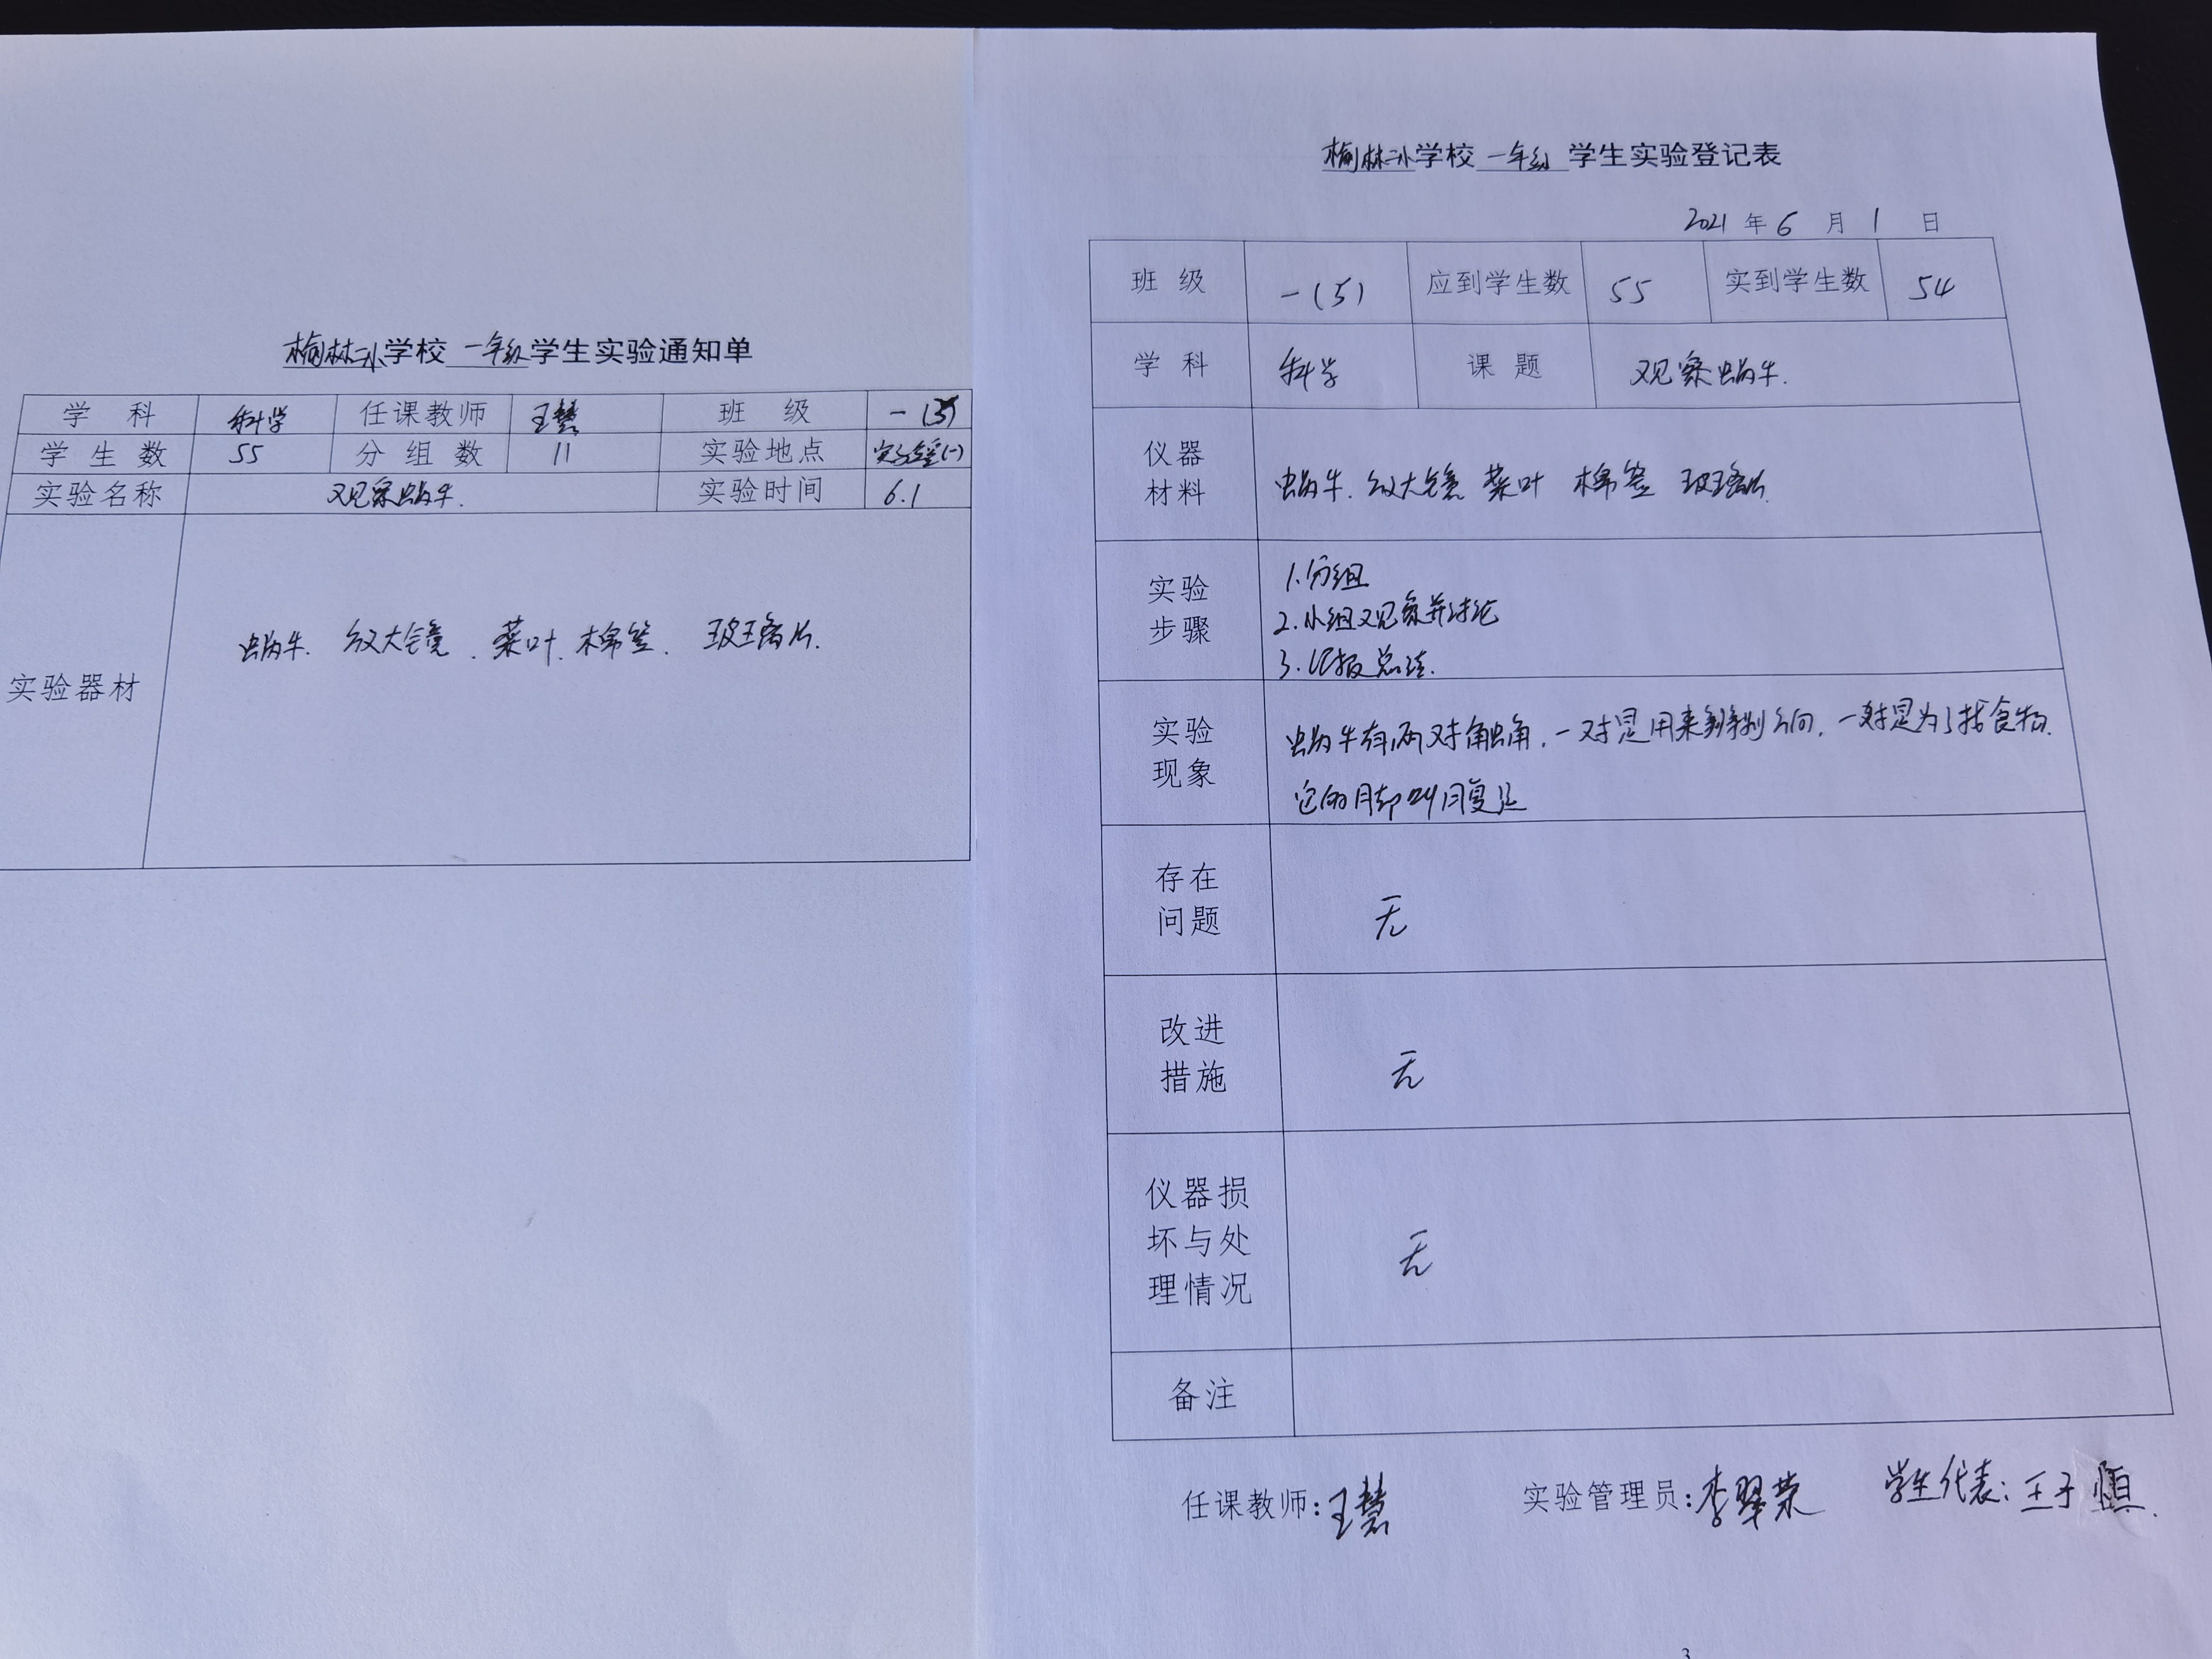 榆林三小学校 一年级 学生实验通知单
学 科 科学 任课教师 王慧 班 级 一(5)
学 生 数 55 分 组 数 11 实验地点 实验室(一)
实验名称 观察蜗牛. 实验时间 6.1
实验器材 蜗牛. 放大镜. 菜叶. 棉签. 玻璃片.
榆林三小学校 一年级 学生实验登记表
2021 年 6 月 1 日
班 级 一(5) 应到学生数 55 实到学生数 54
学 科 科学 课 题 观察蜗牛.
仪器
材料
蜗牛. 放大镜 菜叶 棉签 玻璃片.
实验
步骤
1.分组
2.小组观察并讨论
3.汇报总结.
实验
现象
蜗牛有两对触角.一对是用来辨别方向.一对是为了找食物.
它的脚叫腹足
存在
问题
无
改进
措施
无
仪器损
坏与处
理情况
无
备注
任课教师:王慧 实验管理员:李翠荣 学生代表:王子恒.
3